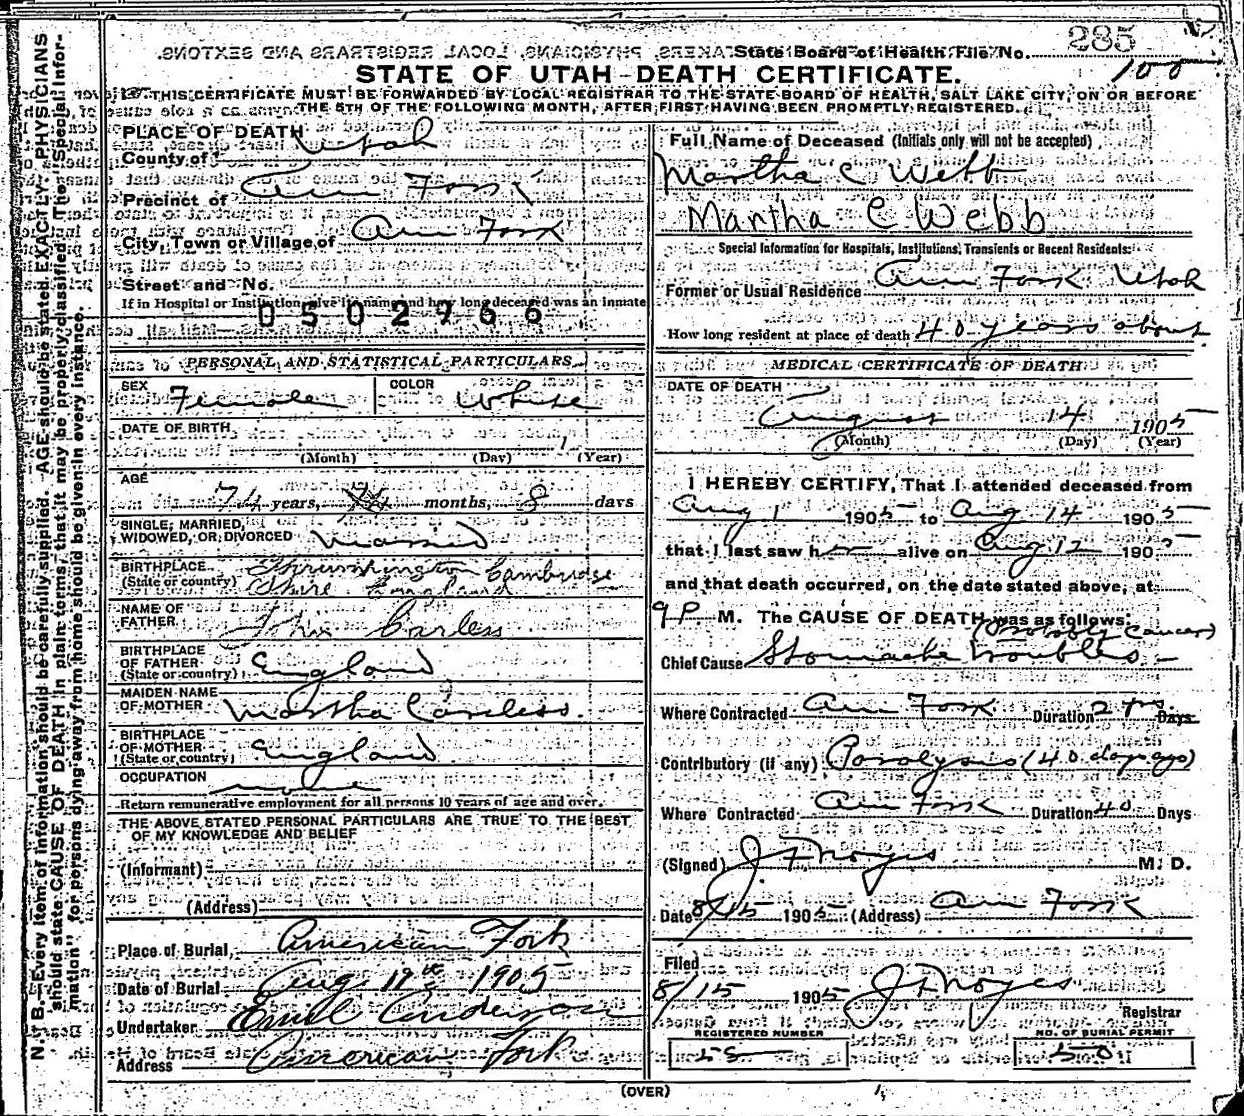 State Board of Health File No. 285
100
STATE OF UTAH—DEATH CERTIFICATE.
THIS CERTIFICATE MUST BE FORWARDED BY LOCAL REGISTRAR TO THE STATE BOARD OF HEALTH, SALT LAKE CITY, ON OR BEFORE
THE 5TH OF THE FOLLOWING MONTH, AFTER FIRST HAVING BEEN PROMPTLY REGISTERED.
N. B.—Every item of information should be carefully supplied. AGE should be stated EXACTLY. PHYSICIANS
should state CAUSE OF DEATH in plain terms, that it may be properly classified. The "Special Infor-
mation" for persons dying away from home should be given in every instance.
PLACE OF DEATH
County of Utah
Precinct of Am Fork
City, Town or Village of Am Fork
Street and No.
If in Hospital or Institution give its name and how long deceased was an inmate
0502966
PERSONAL AND STATISTICAL PARTICULARS
SEX Female COLOR White
DATE OF BIRTH
(Month) (Day) (Year)
AGE
74 years, months, 8 days
SINGLE, MARRIED,
WIDOWED, OR DIVORCED Married
BIRTHPLACE Thrumpington Cambridge
(State or country) Shire England
NAME OF
FATHER John Carless
BIRTHPLACE
OF FATHER England
(State or country)
MAIDEN NAME
OF MOTHER Martha Careless.
BIRTHPLACE
OF MOTHER England
(State or country)
OCCUPATION
Return remunerative employment for all persons 10 years of age and over.
THE ABOVE STATED PERSONAL PARTICULARS ARE TRUE TO THE BEST
OF MY KNOWLEDGE AND BELIEF
(Informant)
(Address)
Place of Burial, American Fork
Date of Burial Aug 1905
Undertaker Emil Anderson
Address American Fork
Full Name of Deceased (Initials only will not be accepted)
Martha C Webb
Martha C Webb
Special Information for Hospitals, Institutions, Transients or Recent Residents:
Former or Usual Residence Am Fork Utah
How long resident at place of death 40 years about
MEDICAL CERTIFICATE OF DEATH
DATE OF DEATH
August 14 1905
(Month) (Day) (Year)
I HEREBY CERTIFY, That I attended deceased from
Aug 1 1905 to Aug 14 1905
that I last saw her alive on Aug 12 1905
and that death occurred, on the date stated above, at
9 P. M. The CAUSE OF DEATH was as follows:
(Probably Cancer)
Chief Cause Stomache troubles
Where Contracted Am Fork Duration 2 yrs Days
Contributory (if any) Paralysis (40 days ago)
Where Contracted Am Fork Duration 40 Days
(Signed) J F Noyes M. D.
Date 8/15 1905 (Address) Am Fork
Filed
8/15 1905 J F Noyes
Registrar
REGISTERED NUMBER NO. OF BURIAL PERMIT
50
(OVER)